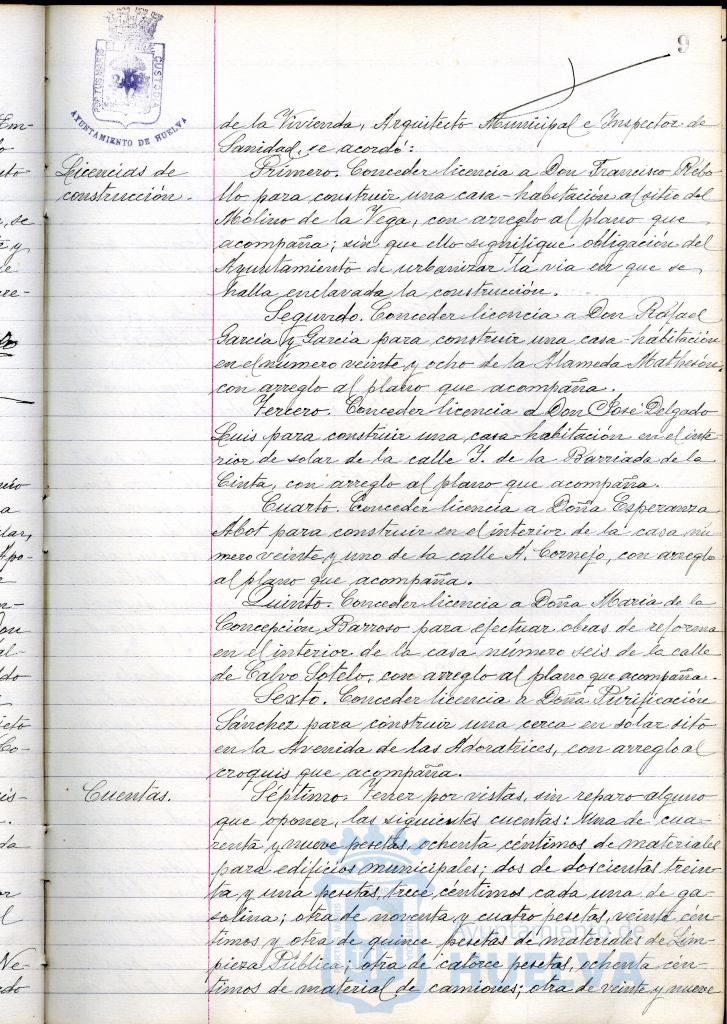 9
PORTUS MARIS
CUSTODIA
AYUNTAMIENTO DE HUELVA
de la Vivienda, Arquitecto Municipal e Inspector de
Sanidad, se acordó:
Licencias de
construcción.
Primero. Conceder licencia a Don Francisco Rebo
llo para construir una casa-habitación al sitio del
Molino de la Vega, con arreglo al plano que
acompaña; sin que ello signifique obligación del
Ayuntamiento de urbanizar la via en que se
halla enclavada la construcción.
Segundo. Conceder licencia a Don Rafael
García y García para construir una casa-habitación
en el número veinte y ocho de la Alameda Mathesón,
con arreglo al plano que acompaña.
Tercero. Conceder licencia a Don José Delgado
Luis para construir una casa-habitación en el inte
rior de solar de la calle Y. de la Barriada de la
Cinta, con arreglo al plano que acompaña.
Cuarto. Conceder licencia a Doña Esperanza
Abot para construir en el interior de la casa nú
mero veinte y uno de la calle A. Cornejo, con arreglo
al plano que acompaña.
Quinto. Conceder licencia a Doña María de la
Concepción Barroso para efectuar obras de reforma
en el interior de la casa número seis de la calle
de Calvo Sotelo, con arreglo al plano que acompaña.
Sexto. Conceder licencia a Doña Purificación
Sánchez para construir una cerca en solar sito
en la Avenida de las Adoratrices, con arreglo al
croquis que acompaña.
Cuentas.
Séptimo. Tener por vistas, sin reparo alguno
que oponer, las siguientes cuentas: Una de cua
renta y nueve pesetas, ochenta céntimos de materiales
para edificios municipales; dos de doscientas trein
ta y una pesetas, trece céntimos cada una de ga
solina; otra de noventa y cuatro pesetas, veinte cén
timos y otra de quince pesetas de materiales de Lim
pieza Pública; otra de catorce pesetas, ochenta cén
timos de material de camiones; otra de veinte y nueve
Ayuntamiento de
HUELVA